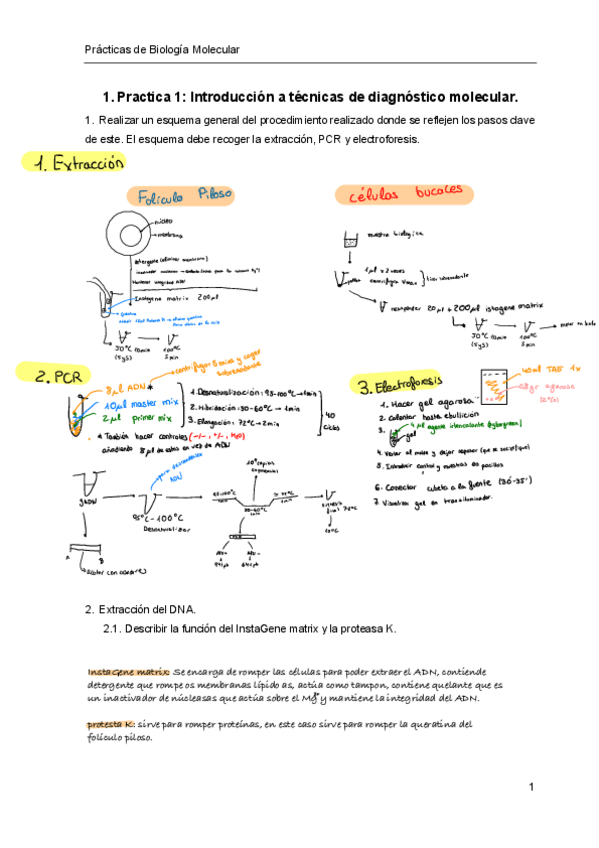 Prácticas de Biología Molecular
1. Practica 1: Introducción a técnicas de diagnóstico molecular.
1. Realizar un esquema general del procedimiento realizado donde se reflejen los pasos clave
de este. El esquema debe recoger la extracción, PCR y electroforesis.
1. Extracción
Folículo Piloso
células bucales
núcleo
membrana
muestra biológica
Detergente (eliminar membrana)
Mantener integridad ADN
Instagene matrix 200 µl
1 µl x 2 veces
centrifuga vmax
tirar sobrenadante
resuspender 20 µl + 200 µl istagene matrix
100°C
5 min
100°C
5 min
2. PCR
centrifugar 5 min y coger
sobrenadante
8 µl ADN *
10 µl master mix
2 µl primer mix
* También hacer controles (-/-, +/-, H2O)
añadiendo 8 µl de estas en vez de ADN
1. Desnaturalización: 95-100°C → 1 min
2. Hibridación: 30-60°C → 1 min
3. Elongación: 72°C → 2 min
40
ciclos
3. Electroforesis
40 ml TAE 1x
agarosa
1. Hacer gel agarosa
2. Calentar hasta ebullición
3.
4 µl agente intercalante (sybrgreen)
gel
4. Verter al molde y dejar reposar (que se solidifique)
5. Introducir control y muestras en pocillos
6. Conectar cubeta a la fuente (30'-35')
7. Visualizar gel en transiluminador.
para desnaturalizar
ADN
95°C - 100°C
Desnaturalizar
30-60°C
A
B
2. Extracción del DNA.
2.1. Describir la función del InstaGene matrix y la proteasa K.
InstaGene matrix: Se encarga de romper las células para poder extraer el ADN, contiende
detergente que rompe os membranas lípido as, actúa como tampon, contiene quelante que es
un inactivador de núcleasas que actúa sobre el Mg y mantiene la integridad del ADN.
protesta K: sirve para romper proteínas, en este caso sirve para romper la queratina del
folículo piloso.
1